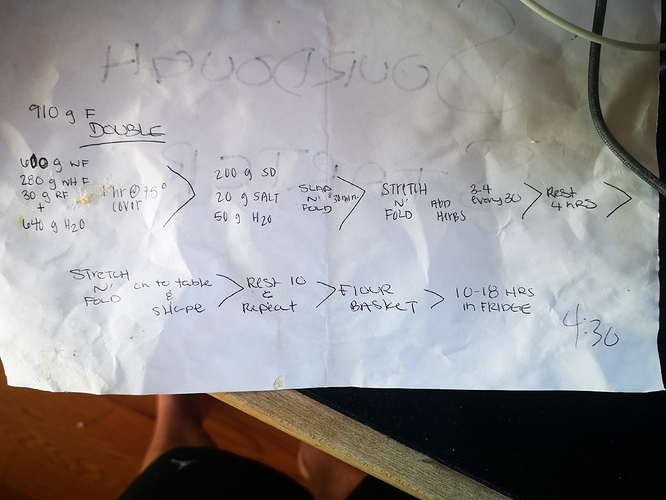 SOURDOUGH
910 g F
DOUBLE
600 g WF
280 g WHF
30 g RF
+
640 g H2O
1 hr @ 75°
cover
200 g SD
20 g SALT
50 g H2O
SLAP
N'
FOLD
30 min.
STRETCH
N'
FOLD
ADD
HERBS
3-4
every 30
Rest
4 HRS
STRETCH
N'
FOLD
on to table
&
SHAPE
Rest 10
&
Repeat
FLOUR
BASKET
10-18 HRS
in FRIDGE
4:30